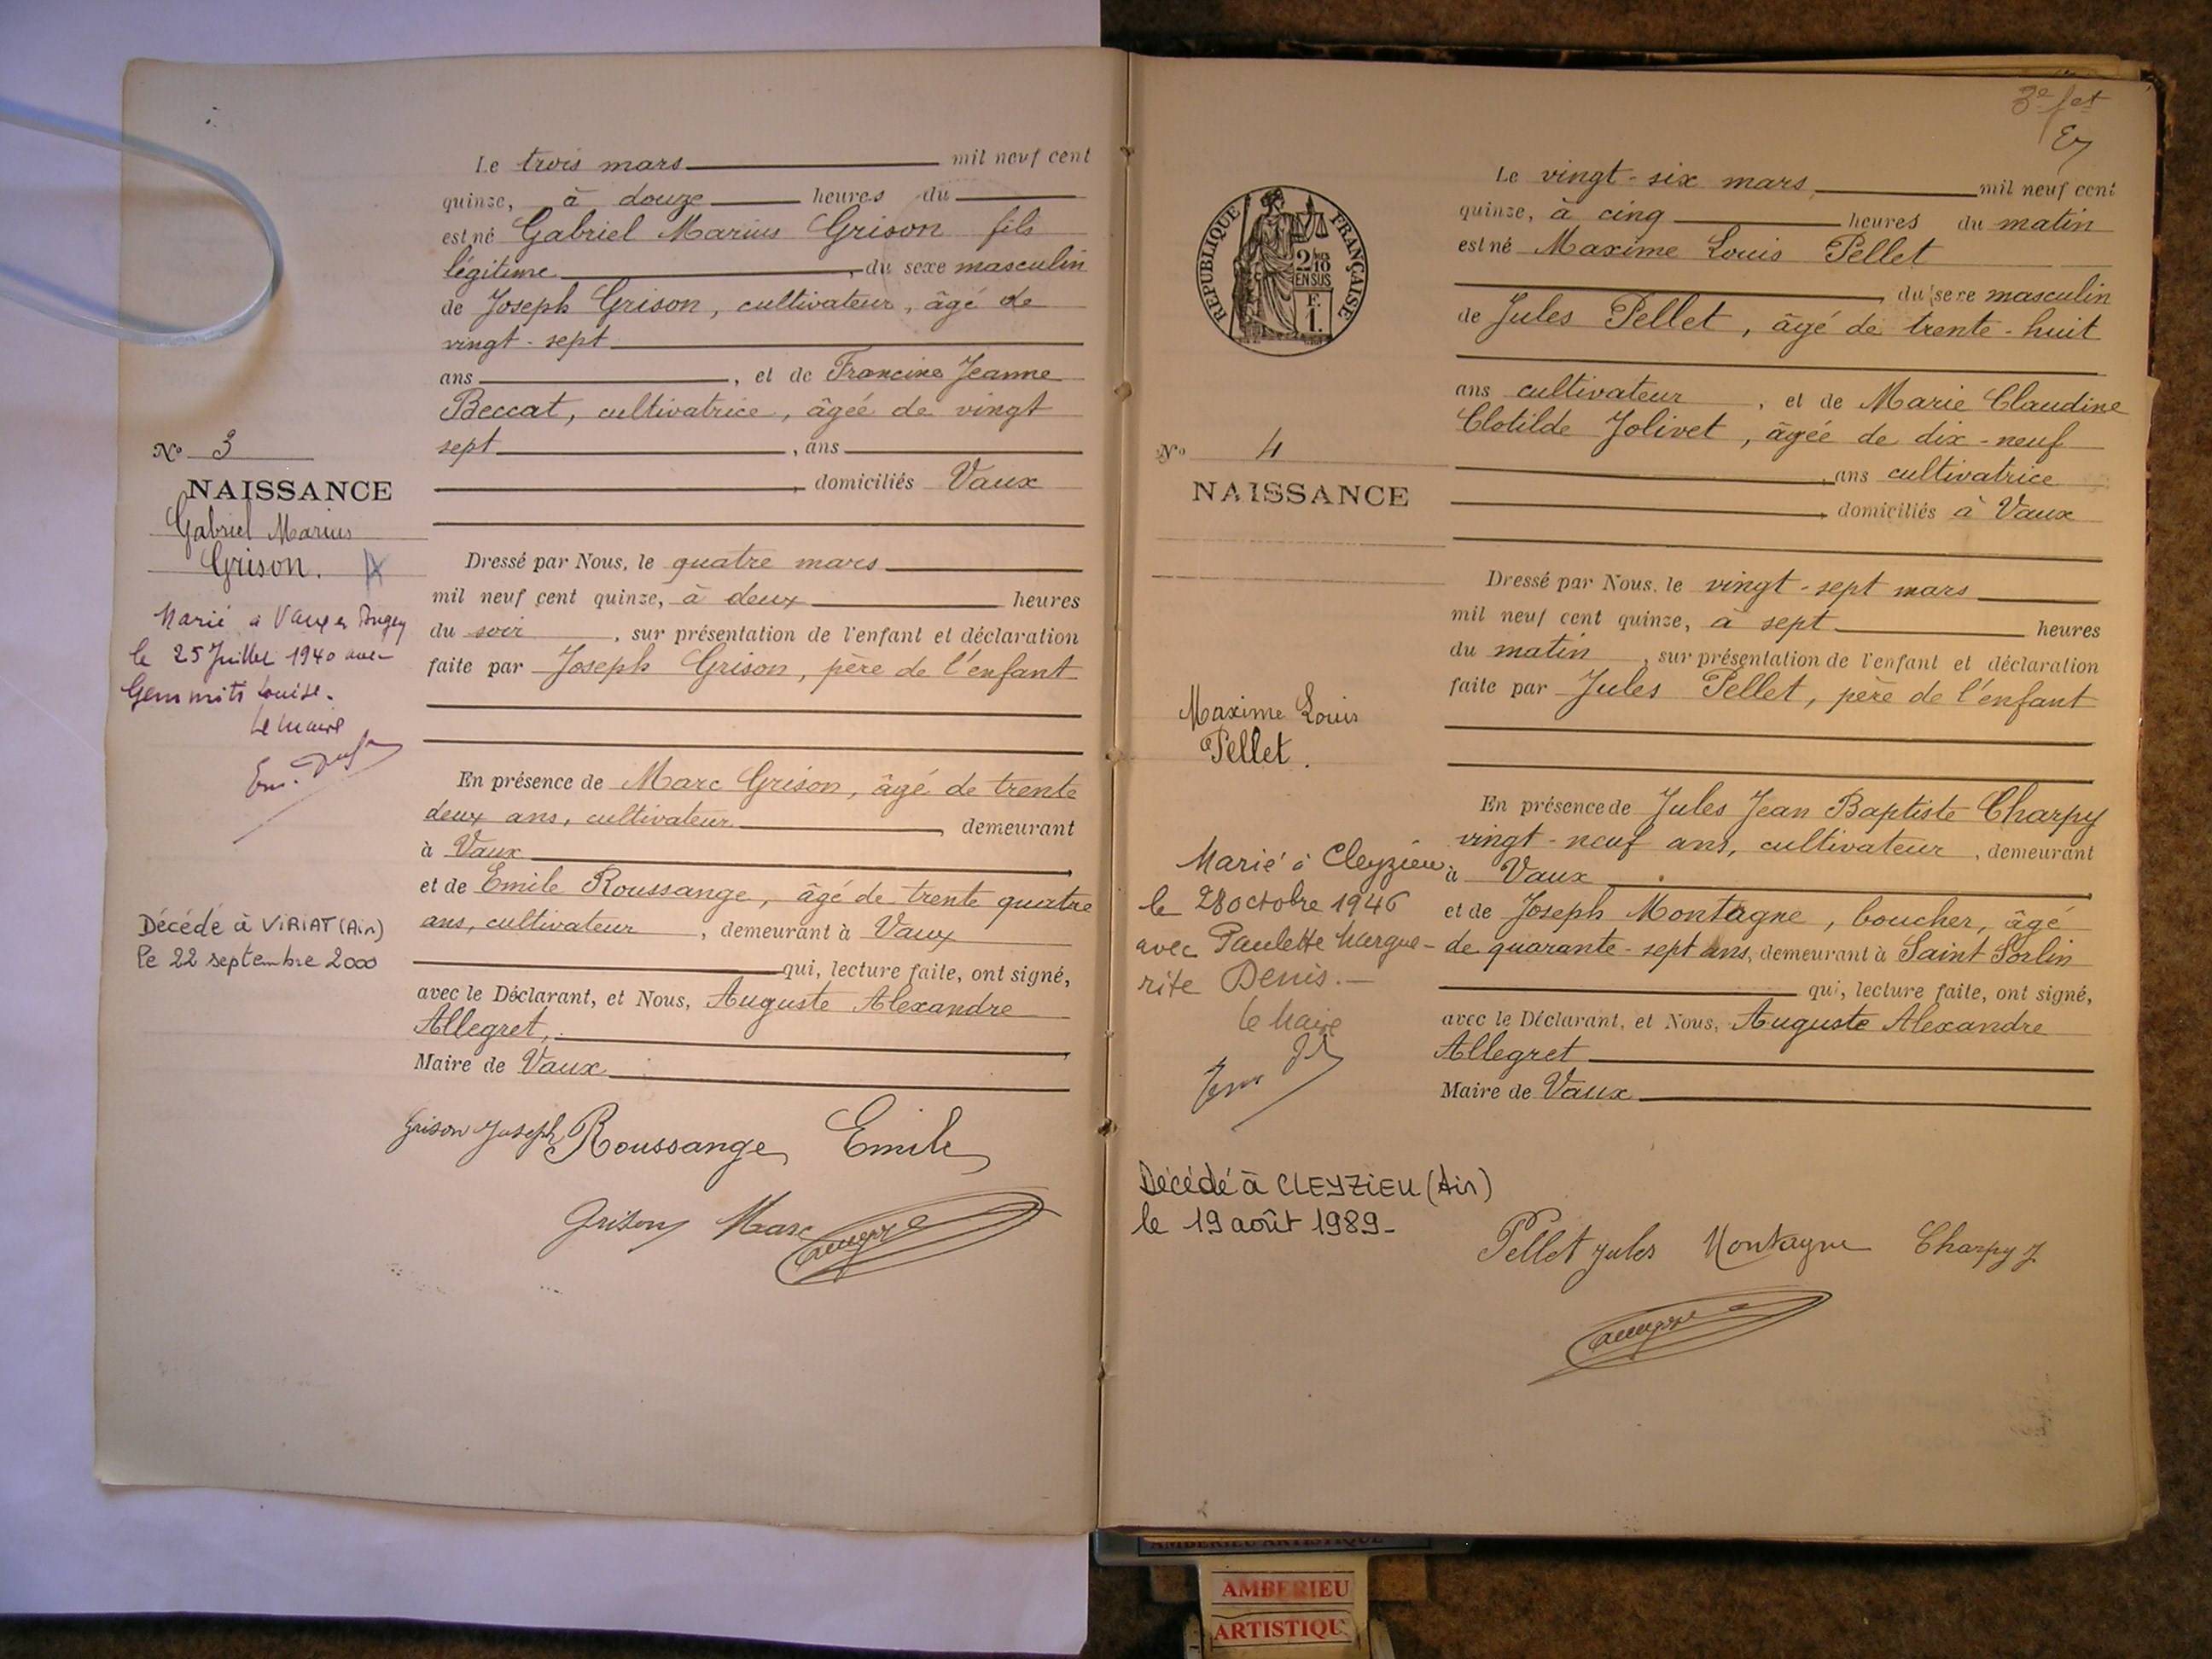 Le trois mars mil neuf cent
quinze, à douze heures du
est né Gabriel Marius Grison fils
légitime, du sexe masculin
de Joseph Grison, cultivateur, âgé de
vingt-sept
ans, et de Francine Jeanne
Beccat, cultivatrice, âgée de vingt
sept, ans
, domiciliés Vaux
Dressé par Nous, le quatre mars
mil neuf cent quinze, à deux heures
du soir, sur présentation de l'enfant et déclaration
faite par Joseph Grison, père de l'enfant
En présence de Marc Grison, âgé de trente
deux ans, cultivateur, demeurant
à Vaux
et de Emile Roussange, âgé de trente quatre
ans, cultivateur, demeurant à Vaux
qui, lecture faite, ont signé,
avec le Déclarant, et Nous, Auguste Alexandre
Allegret,
Maire de Vaux
Grison Joseph Roussange Emile
Grison Marc
No 3
NAISSANCE
Gabriel Marius
Grison.
Marié à Vaux en Bugey
le 25 Juillet 1940 avec
Louise.
Le Maire
Décédé à VIRIAT (Ain)
le 22 septembre 2000
3e
Le vingt-six mars mil neuf cent
quinze, à cinq heures du matin
est né Maxime Louis Pellet
, du sexe masculin
de Jules Pellet, âgé de trente-huit
ans cultivateur, et de Marie Claudine
Clotilde Jolivet, âgée de dix-neuf
, ans cultivatrice
, domiciliés à Vaux
Dressé par Nous, le vingt-sept mars
mil neuf cent quinze, à sept heures
du matin, sur présentation de l'enfant et déclaration
faite par Jules Pellet, père de l'enfant
En présence de Jules Jean Baptiste Charpy
vingt-neuf ans, cultivateur, demeurant
à Vaux
et de Joseph Montagne, boucher, âgé
de quarante-sept ans, demeurant à Saint Sorlin
qui, lecture faite, ont signé,
avec le Déclarant, et Nous, Auguste Alexandre
Allegret
Maire de Vaux
Pellet Jules Montagne Charpy J
RÉPUBLIQUE FRANÇAISE
2/10
EN SUS
F.
1.
No 4
NAISSANCE
Maxime Louis
Pellet.
Marié à Cleyzieu
le 28 octobre 1946
avec Paulette Margue-
rite Denis.-
le Maire
Décédé à CLEYZIEU (Ain)
le 19 août 1989-
AMBERIEU ARTISTIQUE
AMBERIEU
ARTISTIQU